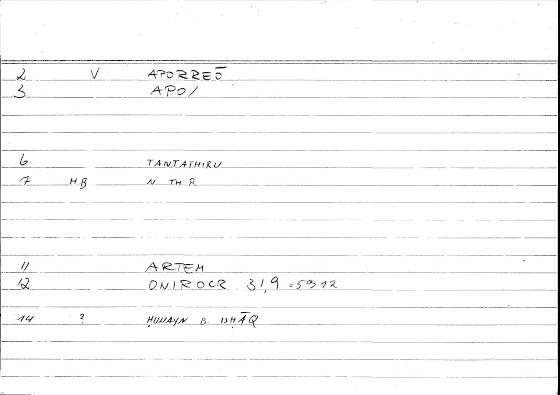 2 V APORREŌ
3 APO/
6 TANTATHIRU
7 HB N TH R
11 ARTEM
12 ONIROCR 31,9 = 59 12
14 ? ḤUNAYN B. ISḤĀQ